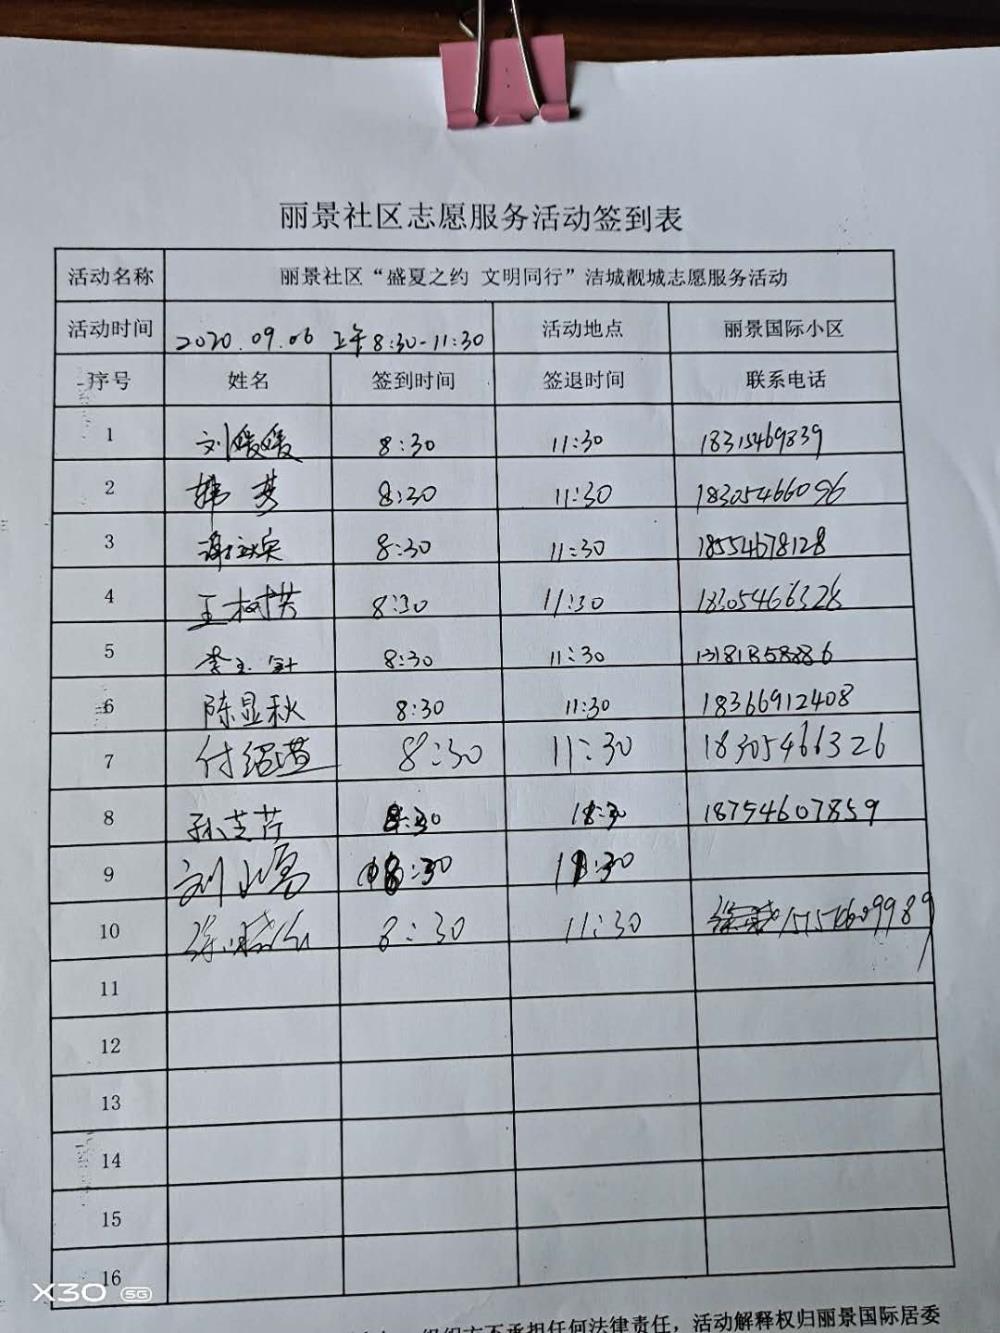 丽景社区志愿服务活动签到表
活动名称 丽景社区“盛夏之约 文明同行”洁城靓城志愿服务活动
活动时间 2020.09.06 上午8:30-11:30 活动地点 丽景国际小区
序号 姓名 签到时间 签退时间 联系电话
1 刘媛媛 8:30 11:30 18315469839
2 韩 8:30 11:30 18305466096
3 8:30 11:30 18554678128
4 王树 8:30 11:30 18305466328
5 8:30 11:30
6 陈显秋 8:30 11:30 18366912408
7 付 8:30 11:30 18305466326
8 孙芝芹 8:30 18754607859
9 刘 8:30 11:30
10 徐 8:30 11:30
11
12
13
14
15
16
X30 5G
不承担任何法律责任，活动解释权归丽景国际居委